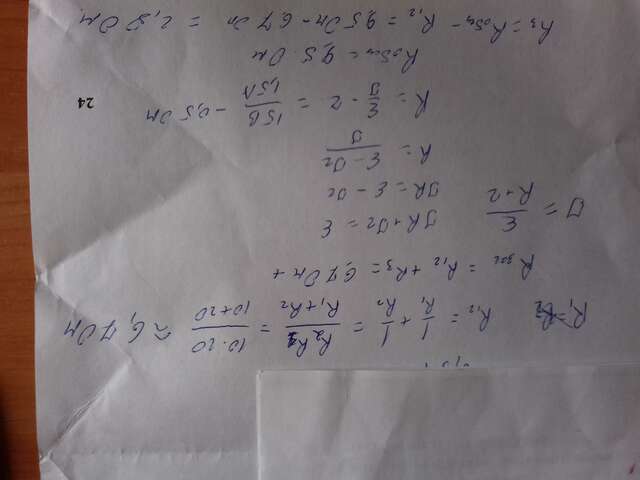 R₁₂ = 1/R₁ + 1/R₂ = R₂R₁/(R₁+R₂) = 10·20/(10+20) ≈ 6,7 Ом
Rэкв = R₁₂ + R₃ = 6,7 Ом +
J = ℰ/(R+r)
JR + Jr = ℰ
JR = ℰ − Jr
R = (ℰ − Jr)/J
R = ℰ/J − r = 15В/1,5А − 0,5 Ом
Rобщ = 9,5 Ом
R₃ = Rобщ − R₁₂ = 9,5 Ом − 6,7 Ом = 2,8 Ом
24